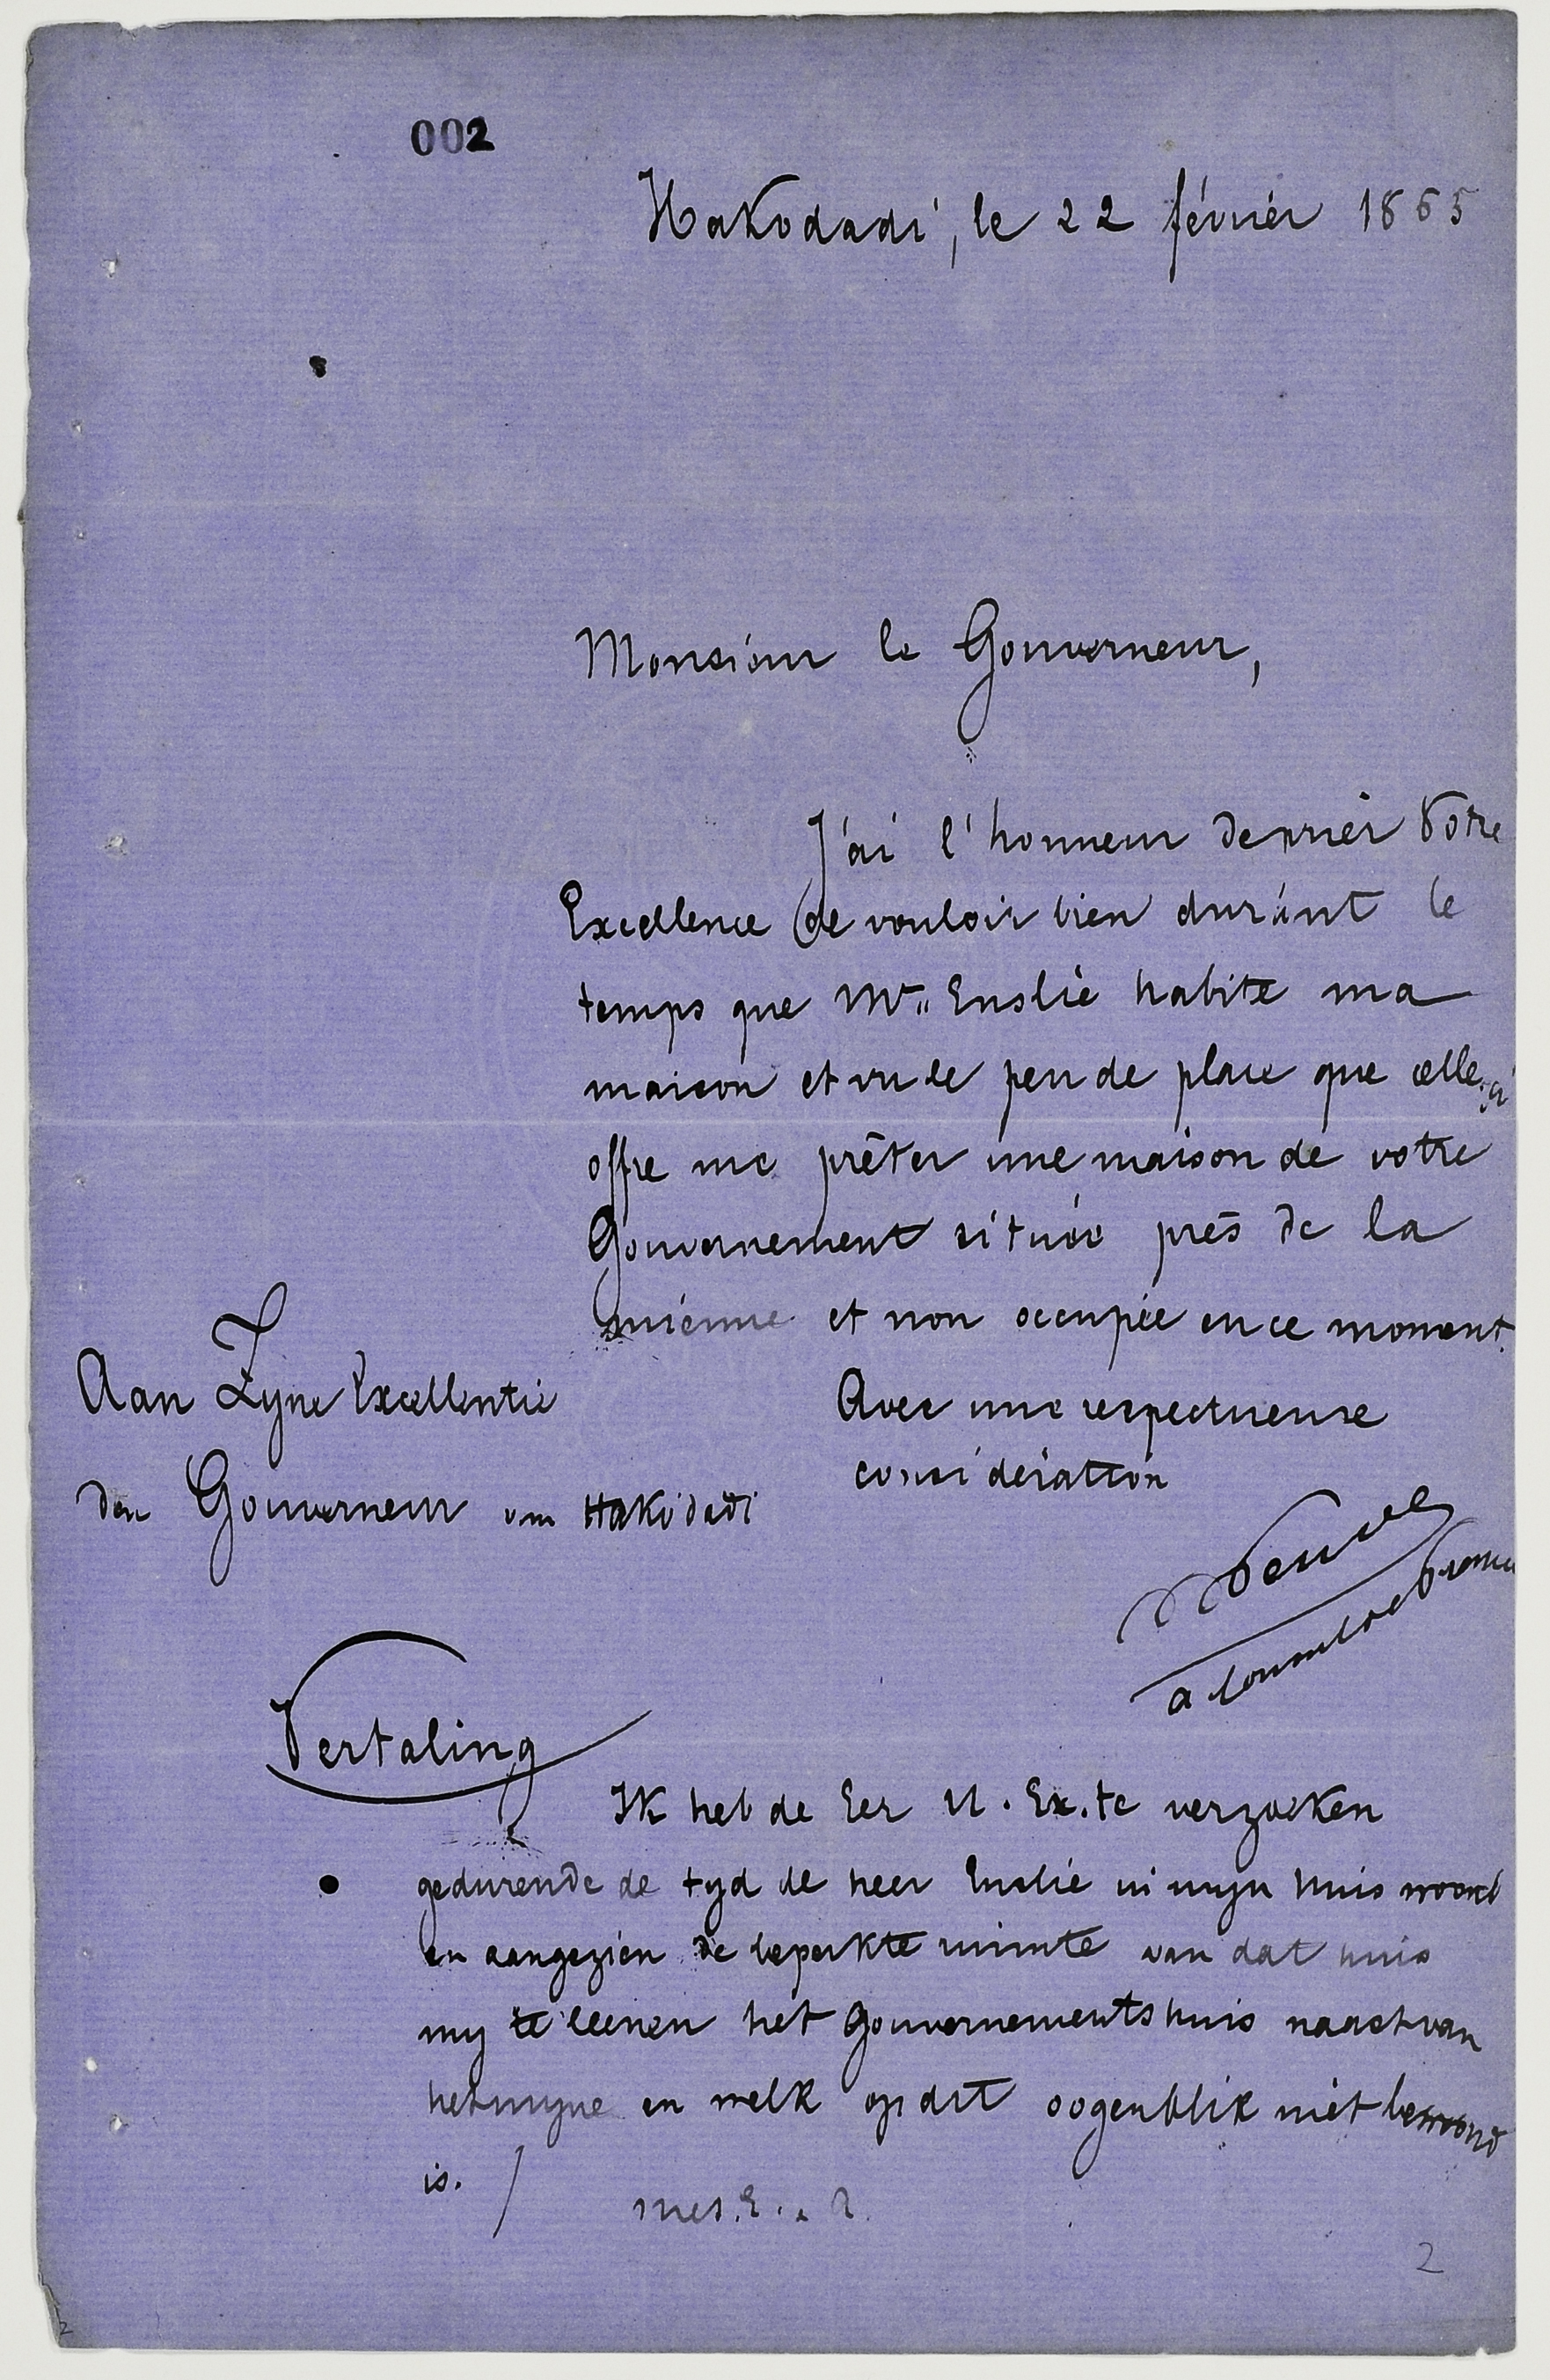 002
Hakodadi, le 22 février 1865
Monsieur le Gouverneur,
J'ai l'honneur de prier Votre
Excellence de vouloir bien durant le
temps que Mr. Enslie habite ma
maison et vu le peu de place que celle-ci
offre me prêter une maison de votre
Gouvernement située près de la
mienne et non occupée en ce moment.
Avec une respectueuse
considération
a. Consul de France
Aan Zyne Excellentie
den Gouverneur van Hakodadi
Vertaling
Ik heb de Eer U. Ex.te verzoeken
gedurende de tyd de heer Enslie in myn huis woont
en aangezien de beperkte ruimte van dat huis
my te leenen het Gouvernementshuis naast van
het myne en welk op dit oogenblik niet bewoond
is.
met.
2
2